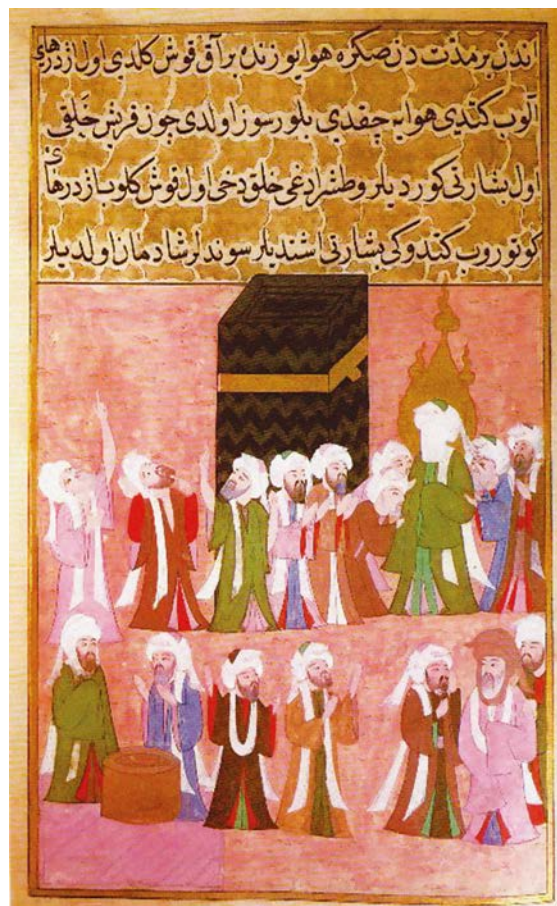 اندن بر مدت دن صكره هوا يوزنده بر آق قوش كلدى اول ازدرهاى
آلوب كتدى هوايه چقدى بلورسوز اولدى چون قريش خلقى
اول بشارتى كورديلر وطشراداغى خلق دخى اول قوش كلوب ازدرهاى
كوتوروب كتدوكى بشارتى اشتديلر سوندلر شادمان اولديلر